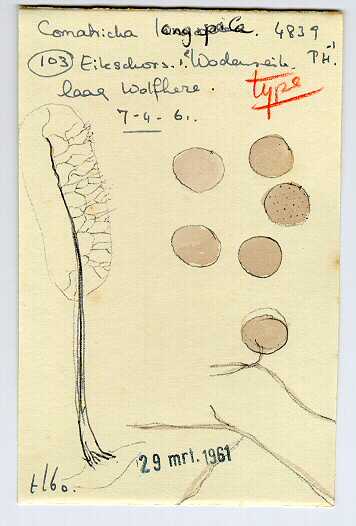 Comatricha longipila. 4839
(103) Eikschors. 't Wodanseik. PH.
laag Wolfheze.
type
7-4-61.
29 mrt. 1961
t/60.